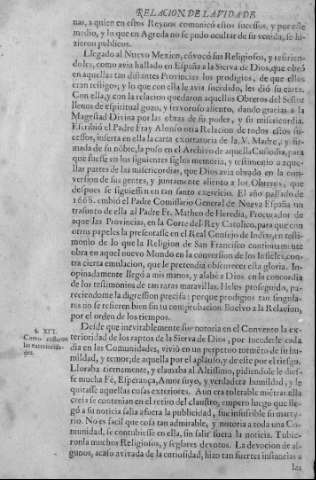 RELACION DE LA VIDA DE
nas, a quien en estos Reynos comunicò estos sucessos, y por este
medio, y lo que en Agreda no se pudo ocultar de su venida, se hi-
zieron publicos.
Llegado al Nuevo Mexico, cõvocò sus Religiosos, y refirien-
doles, como avia hallado en España a la Sierva de Dios, que obrò
en aquellas tan distantes Provincias los prodigios, de que ellos
eran testigos; y lo que con ella le avia sucedido, les diò su carta.
Con ella, y con la relacion quedaron aquellos Obreros del Señor
llenos de espiritual gozo, y fervoroso aliento, dando gracias a la
Magestad Divina por las obras de su poder, y su misericordia.
Escribiò el Padre Fray Alonso otra Relacion de todos estos su-
cessos, inserta en ella la carta exortatoria de la V. Madre, y fir-
mada de su nõbre, la puso en el Archivo de aquella Custodia, para
que fuesse en los siguientes siglos memoria, y testimonio a aque-
llas partes de las misericordias, que Dios avia obrado en la con-
version de sus gentes, y juntamente aliento a los Obreros, que
despues se siguiessen en tan santo exercicio. El año passado de
1668. embiò el Padre Comissario General de Nueva España un
trasunto de ella al Padre Fr. Matheo de Heredia, Procurador de
aquellas Provincias, en la Corte del Rey Catolico, para que con
otros papeles la presentasse en el Real Consejo de Indias, en testi-
monio de lo que la Religion de San Francisco continuamente
obra en aquel nuevo Mundo en la conversion de los Infieles, con-
tra cierta emulacion, que le pretendia obscurecer esta gloria. In-
opinadamente llegò a mis manos, y alabè a Dios en la concordia
de los testimonios de tan raras maravillas. Heles proseguido, pa-
reciendome la digression precisa: porque prodigios tan singula-
res no se refieren bien sin su comprobacion. Buelvo a la Relacion,
por el orden de los tiempos.
§. XIV.
Desde que inevitablemente fue notoria en el Convento la ex-
terioridad de los raptos de la Sierva de Dios, por sucederle cada
dia en las Comunidades, vivió en un perpetuo tormẽto de su hu-
mildad, y temor; de aquella por el aplauso, y de este por el riesgo.
Lloraba tiernamente, y clamaba al Altissimo, pidiendole le dies-
se mucha Fè, Esperança, Amor suyo, y verdadera humildad, y le
quitasse aquellas cosas exteriores. Aun era tolerable mientras ella
creìa se contenian en el retiro del claustro, empero luego que lle-
gò a su noticia salia afuera la publicidad, fue insufrible su marty-
rio. No es facil que cosa tan admirable, y notoria a toda una Co-
munidad, se contubiesse en ella, sin salir fuera la noticia. Tubie-
ronla muchos Religiosos, y seglares devotos. La devocion de al-
gunos, acaso ativada de la curiosidad, hizo tan fuertes instancias a
las